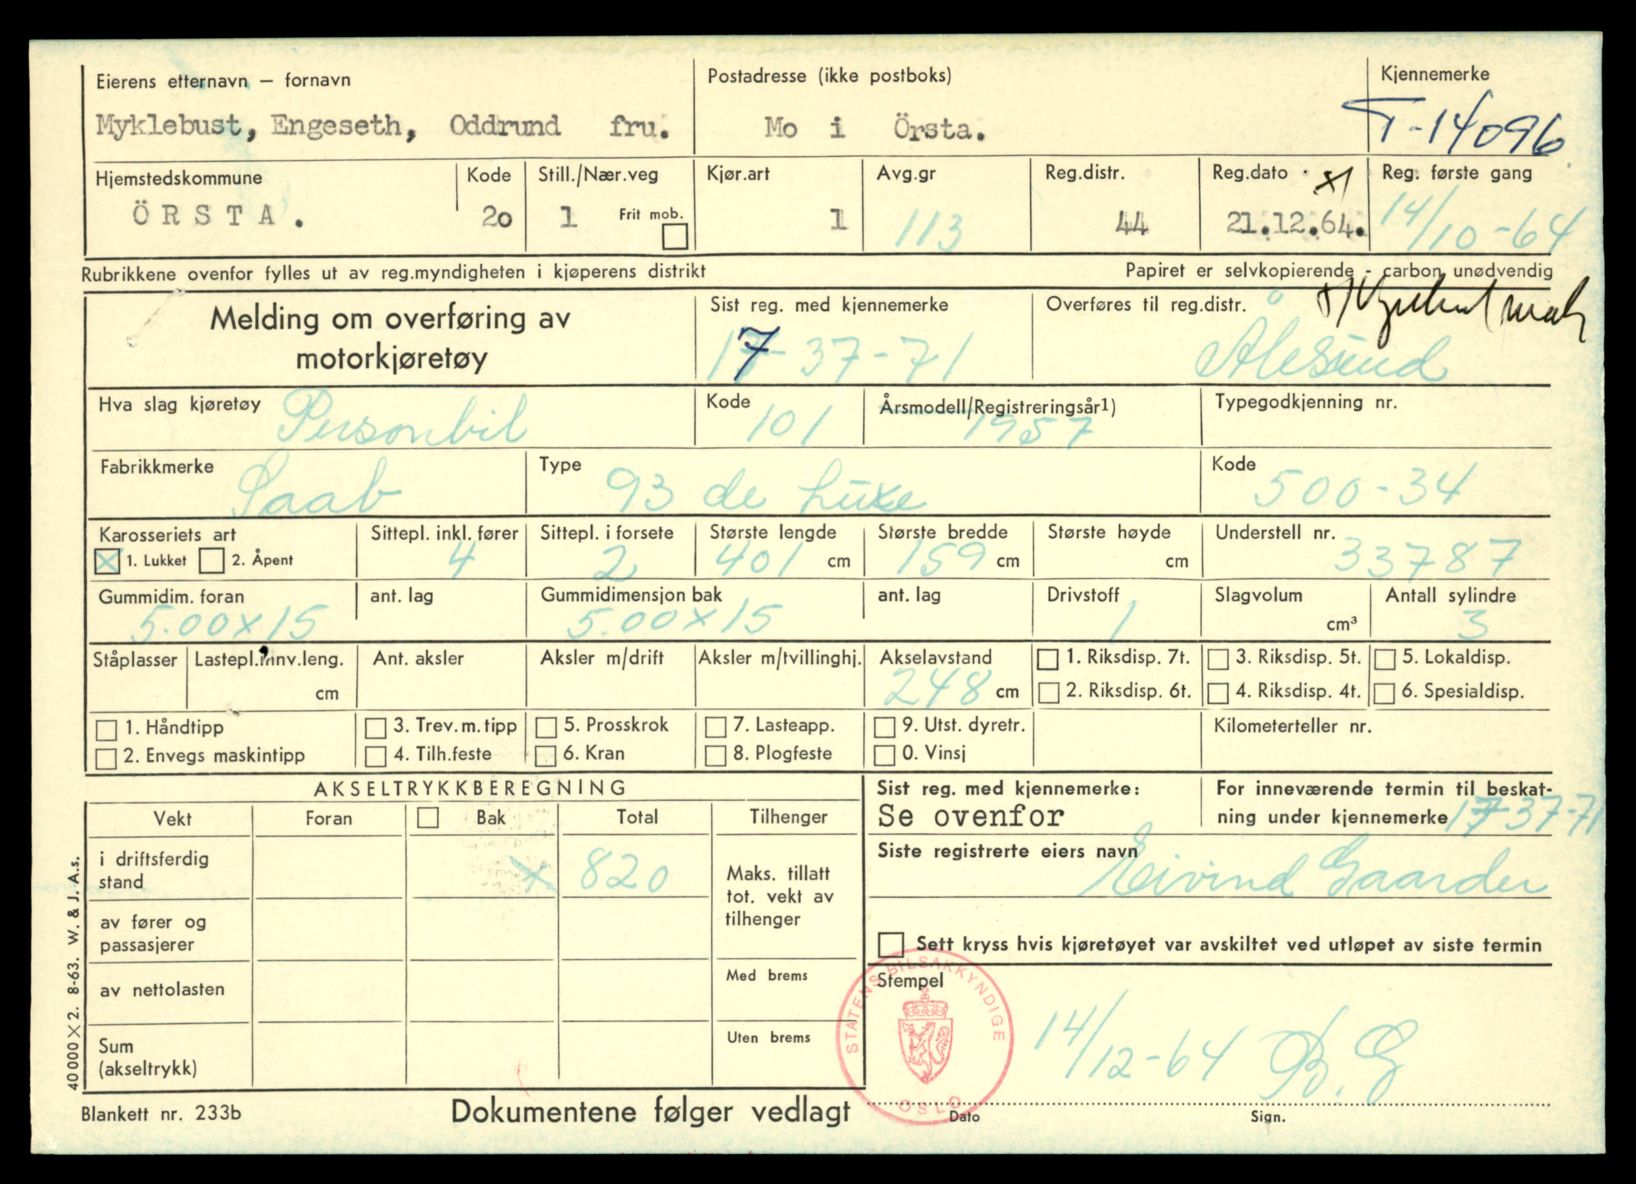 Eierens etternavn — fornavn
Postadresse (ikke postboks)
Kjennemerke
Myklebust, Engeseth, Oddrund fru.
Mo i Örsta.
T-14096
Hjemstedskommune
Kode
Still./Nær.veg
Kjør.art
Avg.gr
Reg.distr.
Reg.dato
x)
Reg. første gang
ÖRSTA.
2o
1
Frit mob.
1
113
44
21.12.64.
14/10-64
Rubrikkene ovenfor fylles ut av reg.myndigheten i kjøperens distrikt
Papiret er selvkopierende - carbon unødvendig
Melding om overføring av
motorkjøretøy
Sist reg. med kjennemerke
17-37-71
Overføres til reg.distr.
Ålesund
Hva slag kjøretøy
Personbil
Kode
101
Årsmodell/Registreringsår1)
1957
Typegodkjenning nr.
Fabrikkmerke
Saab
Type
93 de Luxe
Kode
500-34
Karosseriets art
Sittepl. inkl. fører
Sittepl. i forsete
Største lengde
Største bredde
Største høyde
Understell nr.
X 1. Lukket
2. Åpent
4
2
401 cm
159 cm
cm
33787
Gummidim. foran
ant. lag
Gummidimensjon bak
ant. lag
Drivstoff
Slagvolum
Antall sylindre
5.00x15
5.00x15
1
cm³
3
Ståplasser
Lastepl.innv.leng.
Ant. aksler
Aksler m/drift
Aksler m/tvillinghj.
Akselavstand
1. Riksdisp. 7t.
3. Riksdisp. 5t.
5. Lokaldisp.
cm
248 cm
2. Riksdisp. 6t.
4. Riksdisp. 4t.
6. Spesialdisp.
1. Håndtipp
3. Trev.m.tipp
5. Prosskrok
7. Lasteapp.
9. Utst. dyretr.
Kilometerteller nr.
2. Envegs maskintipp
4. Tilh.feste
6. Kran
8. Plogfeste
0. Vinsj
AKSELTRYKKBEREGNING
Sist reg. med kjennemerke:
Se ovenfor
For inneværende termin til beskat-
ning under kjennemerke 17-37-71
Vekt
Foran
Bak
Total
Tilhenger
Siste registrerte eiers navn
Eivind Gaarder
i driftsferdig
stand
x
820
Maks. tillatt
tot. vekt av
tilhenger
av fører og
passasjerer
Sett kryss hvis kjøretøyet var avskiltet ved utløpet av siste termin
av nettolasten
Med brems
Stempel
STATENS BILSAKKYNDIGE
OSLO
14/12-64 B.G
Sum
(akseltrykk)
Uten brems
40000X2. 8-63. W. & J. A.s.
Blankett nr. 233b
Dokumentene følger vedlagt
Dato
Sign.